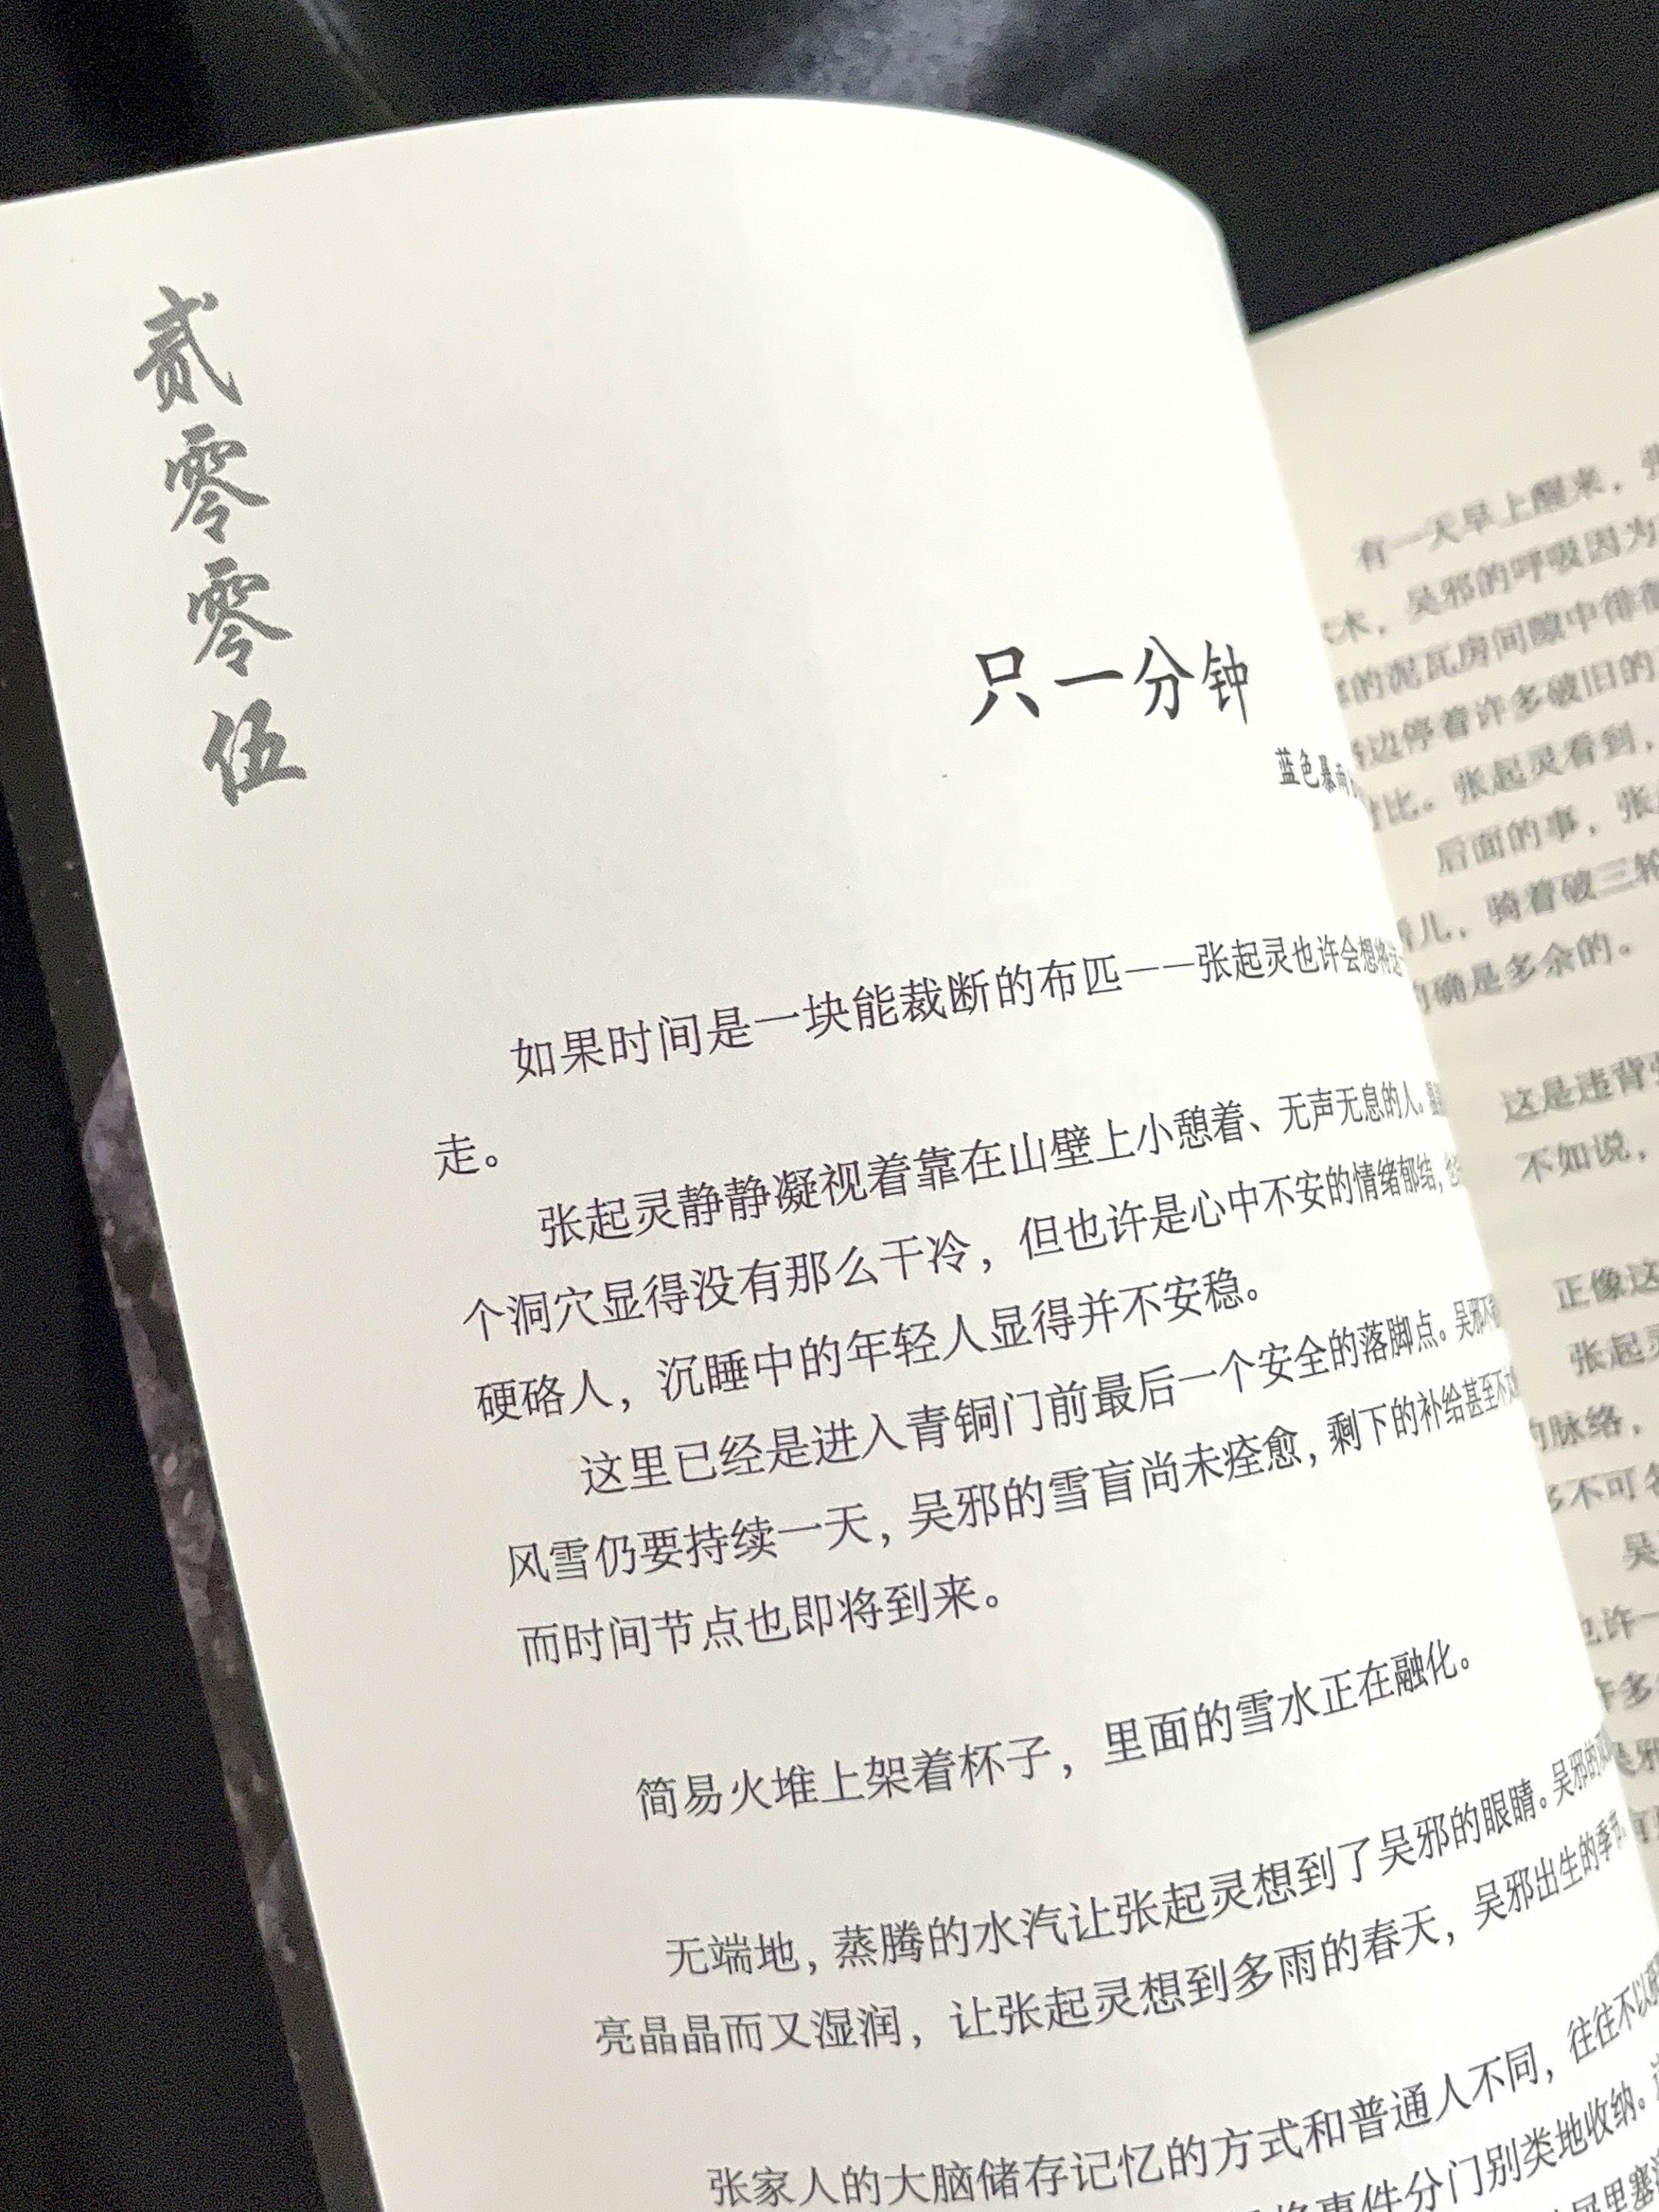 贰零零伍
只一分钟
蓝色暴雨
如果时间是一块能裁断的布匹——张起灵也许会想将这
走。
张起灵静静凝视着靠在山壁上小憩着、无声无息的人。
个洞穴显得没有那么干冷，但也许是心中不安的情绪郁结，
硬硌人，沉睡中的年轻人显得并不安稳。
这里已经是进入青铜门前最后一个安全的落脚点。吴邪不
风雪仍要持续一天，吴邪的雪盲尚未痊愈，剩下的补给甚至不
而时间节点也即将到来。
简易火堆上架着杯子，里面的雪水正在融化。
无端地，蒸腾的水汽让张起灵想到了吴邪的眼睛。吴邪的
亮晶晶而又湿润，让张起灵想到多雨的春天，吴邪出生的季节
张家人的大脑储存记忆的方式和普通人不同，往往不以
事件分门别类地收纳。
有一天早上醒来，张
木，吴邪的呼吸因为
的泥瓦房间隙中徘徊
边停着许多破旧的
对比。张起灵看到，
后面的事，张
着儿，骑着破三轮
的确是多余的。
这是违背
不如说，
正像这
张起灵
的脉络，
多不可名
吴
也许一
许多
吴邪